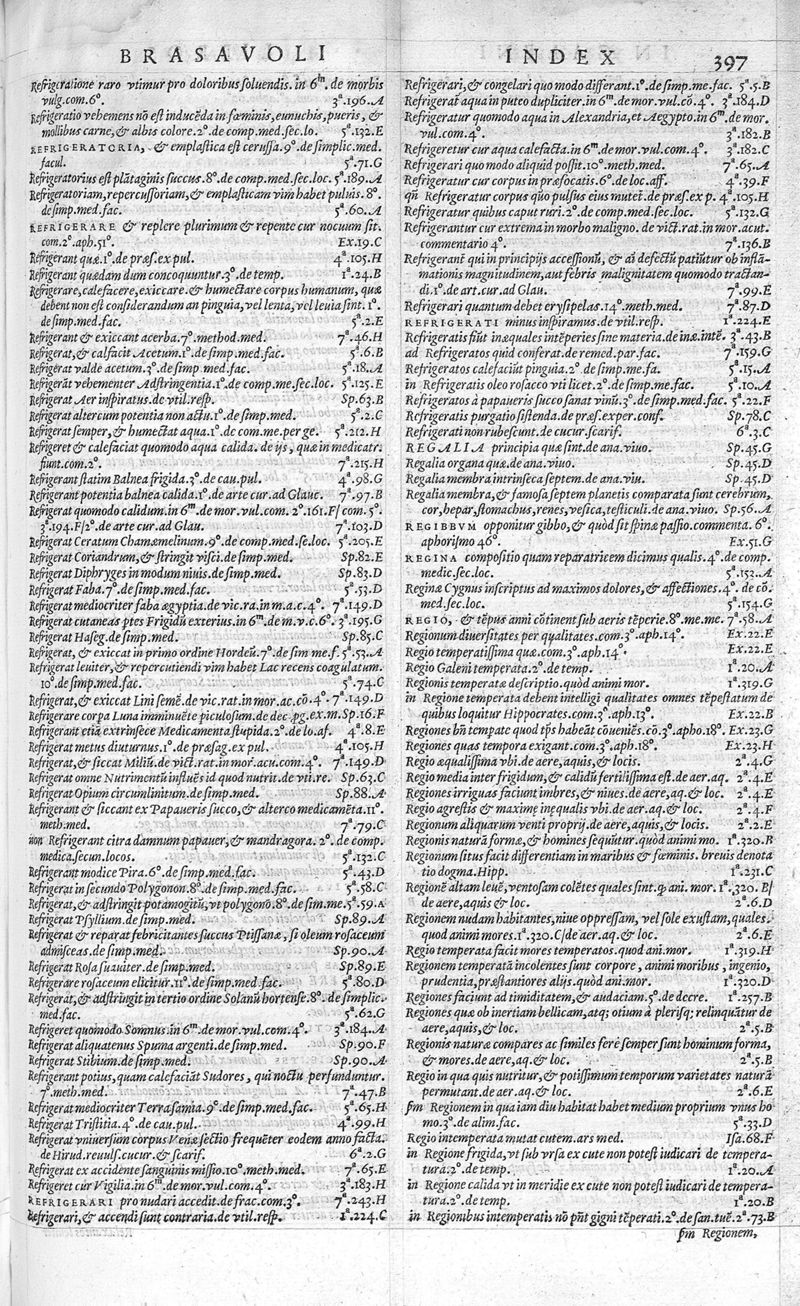 BRASAVOLI
Refrigeratione raro vtimur pro doloribus soluendis. in 6ᵐ. de morbis
vulg. com. 6°. 3ᵃ.196.A
Refrigeratio vehemens nō est inducēda in fœminis, eunuchis, pueris, &
mollibus carne, & albis colore. 2°. de comp. med. sec. lo. 5ᵃ.132.E
REFRIGERATORIA, & emplastica est cerussa. 9°. de simplic. med.
facul. 5ᵃ.71.G
Refrigeratorius est plātaginis succus. 8°. de comp. med. sec. loc. 5ᵃ.189.A
Refrigeratoriam, repercussoriam, & emplasticam vim habet puluis. 8°.
de simp. med. fac. 5ᵃ.60.A
REFRIGERARE & replere plurimum & repente cur nocuum sit.
com. 2°. aph. 51°. Ex.19.C
Refrigerant quæ. 1°. de præs. ex pul. 4ᵃ.105.H
Refrigerant quædam dum concoquuntur. 3°. de temp. 1ᵃ.24.B
Refrigerare, calefacere, exiccare. & humectare corpus humanum, quæ
debent non est considerandum an pinguia, vel lenta, vel leuia sint. 1°.
de simp. med. fac. 5ᵃ.2.E
Refrigerant & exiccant acerba. 7°. method. med. 7ᵃ.46.H
Refrigerat, & calfacit Acetum. 1°. de simp. med. fac. 5ᵃ.6.B
Refrigerat valde acetum. 3°. de simp. med. fac. 5ᵃ.18.A
Refrigerāt vehementer Adstringentia. 1°. de comp. me. sec. loc. 5ᵃ.125.E
Refrigerat Aer inspiratus. de vtil. resp. Sp.63.B
Refrigerat altercum potentia non actu. 1°. de simp. med. 5ᵃ.2.C
Refrigerat semper, & humectat aqua. 1°. de com. me. per ge. 5ᵃ.212.H
Refrigeret & calefaciat quomodo aqua calida. de ijs, quæ in medicatr.
fiunt. com. 2°. 7ᵃ.215.H
Refrigerant statim Balnea frigida. 3°. de cau. pul. 4ᵃ.98.G
Refrigerant potentia balnea calida. 1°. de arte cur. ad Glauc. 7ᵃ.97.B
Refrigerat quomodo calidum. in 6ᵐ. de mor. vul. com. 2°. 161.F/ com. 5°.
3ᵃ.194.F/2°. de arte cur. ad Glau. 7ᵃ.103.D
Refrigerat Ceratum Chamæmelinum. 9°. de comp. med. se. loc. 5ᵃ.205.E
Refrigerat Coriandrum, & stringit visci. de simp. med. Sp.82.E
Refrigerat Diphryges in modum niuis. de simp. med. Sp.83.D
Refrigerat Faba. 7°. de simp. med. fac. 5ᵃ.53.D
Refrigerat mediocriter faba ægyptia. de vic. ra. in m. a. c. 4°. 7ᵃ.149.D
Refrigerat cutaneas ptes Frigidū exterius. in 6ᵐ. de m. v. c. 6°. 3ᵃ.195.G
Refrigerat Haseg. de simp. med. Sp.85.C
Refrigerat, & exiccat in primo ordine Hordeū. 7°. de sim me. f. 5ᵃ.53.A
Refrigerat leuiter, & repercutiendi vim habet Lac recens coagulatum.
10°. de simp. med. fac. 5ᵃ.74.C
Refrigerat, & exiccat Lini semē. de vic. rat. in mor. ac. cō. 4°. 7ᵃ.149.D
Refrigerare corpa Luna imminuēte piculosum. de dec. pg. ex. m. Sp.16.F
Refrigerant etiā extrinsece Medicamenta stupida. 2°. de lo. af. 4ᵃ.8.E
Refrigerat metus diuturnus. 1°. de præsag. ex pul. 4ᵃ.105.H
Refrigerat, & siccat Miliū. de vict. rat. in mor. acu. com. 4°. 7ᵃ.149.D
Refrigerat omne Nutrimentū influēs id quod nutrit. de vti. re. Sp.63.C
Refrigerat Opium circumlinitum. de simp. med. Sp.88.A
Refrigerant & siccant ex Papaueris succo, & alterco medicamēta. 11°.
meth. med. 7ᵃ.79.C
non Refrigerant citra damnum papauer, & mandragora. 2°. de comp.
medica. secun. locos. 5ᵃ.132.C
Refrigerant modice Pira. 6°. de simp. med. fac. 5ᵃ.43.D
Refrigerat in secundo Polygonon. 8°. de simp. med. fac. 5ᵃ.58.C
Refrigerat, & adstringit potamogitū, vt polygonō. 8°. de sim. me. 5ᵃ.59.A
Refrigerat Psyllium. de simp. med. Sp.89.A
Refrigerat & reparat febricitantes succus Ptissanæ, si oleum rosaceum
admisceas. de simp. med. Sp.90.A
Refrigerat Rosa suauiter. de simp. med. Sp.89.E
Refrigerare rosaceum elicitur. 11°. de simp. med. fac. 5ᵃ.80.D
Refrigerat, & adstringit in tertio ordine Solanū hortense. 8°. de simplic.
med. fac. 5ᵃ.62.G
Refrigeret quomodo Somnus. in 6ᵐ. de mor. vul. com. 4°. 3ᵃ.184.A
Refrigerat aliquatenus Spuma argenti. de simp. med. Sp.90.F
Refrigerat Stibium. de simp. med. Sp.90.A
Refrigerant potius, quam calefaciāt Sudores, qui noctu perfunduntur.
7°. meth. med. 7ᵃ.47.B
Refrigerat mediocriter Terra samia. 9°. de simp. med. fac. 5ᵃ.65.H
Refrigerat Tristitia. 4°. de cau. pul. 4ᵃ.99.H
Refrigerat vniuersum corpus Venæ sectio frequēter eodem anno facta.
de Hirud. reuuls. cucur. & scarif. 6ᵃ.2.G
Refrigerat ex accidente sanguinis missio. 10°. meth. med. 7ᵃ.65.E
Refrigeret cur Vigilia. in 6ᵐ. de mor. vul. com. 4°. 3ᵃ.183.H
REFRIGERARI pro nudari accedit. de frac. com. 3°. 7ᵃ.243.H
Refrigerari, & accendi sunt contraria. de vtil. resp. 1ᵃ.224.C
INDEX 397
Refrigerari, & congelari quo modo differant. 1°. de simp. me. fac. 5ᵃ.5.B
Refrigerat aqua in puteo dupliciter. in 6ᵐ. de mor. vul. cō. 4°. 3ᵃ.184.D
Refrigeratur quomodo aqua in Alexandria, et Aegypto. in 6ᵐ. de mor.
vul. com. 4°. 3ᵃ.182.B
Refrigeretur cur aqua calefacta. in 6ᵐ. de mor. vul. com. 4°. 3ᵃ.182.C
Refrigerari quo modo aliquid possit. 10°. meth. med. 7ᵃ.65.A
Refrigeratur cur corpus in præfocatis. 6°. de loc. aff. 4ᵃ.39.F
qñ Refrigeratur corpus quo pulsus eius mutet. de præs. ex p. 4ᵃ.105.H
Refrigeratur quibus caput ruri. 2°. de comp. med. sec. loc. 5ᵃ.132.G
Refrigerantur cur extrema in morbo maligno. de vict. rat. in mor. acut.
commentario 4°. 7ᵃ.136.B
Refrigerant qui in principijs accessionū, & añ defectū patiūtur ob inflā-
mationis magnitudinem, aut febris malignitatem quomodo tractan-
di. 1°. de art. cur. ad Glau. 7ᵃ.99.E
Refrigerari quantum debet erysipelas. 14°. meth. med. 7ᵃ.87.D
REFRIGERATI minus inspiramus. de vtil. resp. 1ᵃ.224.E
Refrigeratis fiūt inæquales intēperies sine materia. de inæ. intē. 3ᵃ.43.B
ad Refrigeratos quid conferat. de remed. par. fac. 7ᵃ.159.G
Refrigeratos calefaciūt pinguia. 2°. de simp. me. fa. 5ᵃ.15.A
in Refrigeratis oleo rosacco vti licet. 2°. de simp. me. fac. 5ᵃ.10.A
Refrigeratos à papaueris succo sanat vinū. 3°. de simp. med. fac. 5ᵃ.22.F
Refrigeratis purgatio sistenda. de præs. exper. conf. Sp.78.C
Refrigerati non rubescunt. de cucur. scarif. 6ᵃ.3.C
REGALIA principia quæ sint. de ana. viuo. Sp.45.G
Regalia organa quæ. de ana. viuo. Sp.45.D
Regalia membra intrinseca septem. de ana. viu. Sp.45.D
Regalia membra, & famosa septem planetis comparata sunt cerebrum,
cor, hepar, stomachus, renes, vesica, testiculi. de ana. viuo. Sp.56.A
REGIBBVM opponitur gibbo, & quòd sit spinæ passio. commenta. 6°.
aphorismo 46°. Ex.51.G
REGINA compositio quam reparatricem dicimus qualis. 4°. de comp.
medic. sec. loc. 5ᵃ.153.A
Reginæ Cygnus inscriptus ad maximos dolores, & affectiones. 4°. de cō.
med. sec. loc. 5ᵃ.154.G
REGIO, & tēpus anni cōtinent sub aeris tēperie. 8°. me. me. 7ᵃ.58.A
Regionum diuersitates per qualitates. com. 3°. aph. 14°. Ex.22.E
Regio temperatissima quæ. com. 3°. aph. 14°. Ex.22.E
Regio Galeni temperata. 2°. de temp. 1ᵃ.20.A
Regionis temperatæ descriptio. quòd animi mor. 1ᵃ.319.G
in Regione temperata debent intelligi qualitates omnes tēpestatum de
quibus loquitur Hippocrates. com. 3°. aph. 13°. Ex.22.B
Regiones bñ tempate quod tps habeāt cōueniēs. cō. 3°. apho. 18°. Ex.23.G
Regiones quas tempora exigant. com. 3°. aph. 18°. Ex.23.H
Regio æqualissima vbi. de aere, aquis, & locis. 2ᵃ.4.G
Regio media inter frigidum, & calidū fertilissima est. de aer. aq. 2ᵃ.4.E
Regiones irriguas faciunt imbres, & niues. de aere, aq. & loc. 2ᵃ.4.E
Regio agrestis & maxime inequalis vbi. de aer. aq. & loc. 2ᵃ.4.F
Regionum aliquarum venti proprij. de aere, aquis, & locis. 2ᵃ.2.E
Regionis naturā formæ, & homines sequūtur. quòd animi mo. 1ᵃ.320.B
Regionum situs facit differentiam in maribus & fœminis. breuis denota
tio dogma. Hipp. 1ᵃ.231.C
Regionē altam leuē, ventosam colētes quales sint. q. ani. mor. 1ᵃ.320.B/
de aere, aquis & loc. 2ᵃ.6.D
Regionem nudam habitantes, niue oppressam, vel sole exustam, quales.
quod animi mores. 1ᵃ.320.C/de aer. aq. & loc. 2ᵃ.6.E
Regio temperata facit mores temperatos. quod ani. mor. 1ᵃ.319.H
Regionem temperatā incolentes sunt corpore, animi moribus, ingenio,
prudentia, præstantiores alijs. quòd ani. mor. 1ᵃ.320.D
Regiones faciunt ad timiditatem, & audaciam. 5°. de decre. 1ᵃ.257.B
Regiones quæ ob inertiam bellicam, atq; otium à plerisq; relinquūtur de
aere, aquis, & loc. 2ᵃ.5.B
Regionis naturæ compares ac similes ferè semper sunt hominum forma,
& mores. de aere, aq. & loc. 2ᵃ.5.B
Regio in qua quis nutritur, & potissimum temporum varietates naturā
permutant. de aer. aq. & loc. 2ᵃ.6.E
sm Regionem in qua iam diu habitat habet medium proprium vnus ho
mo. 3°. de alim. fac. 5ᵃ.33.D
Regio intemperata mutat cutem. ars med. Isa.68.F
in Regione frigida, vt sub vrsa ex cute non potest iudicari de tempera-
tura. 2°. de temp. 1ᵃ.20.A
in Regione calida vt in meridie ex cute non potest iudicari de tempera-
tura. 2°. de temp. 1ᵃ.20.B
in Regionibus intemperatis nō pñt gigni tēperati. 2°. de san. tuē. 2ᵃ.73.B
sm Regionem,